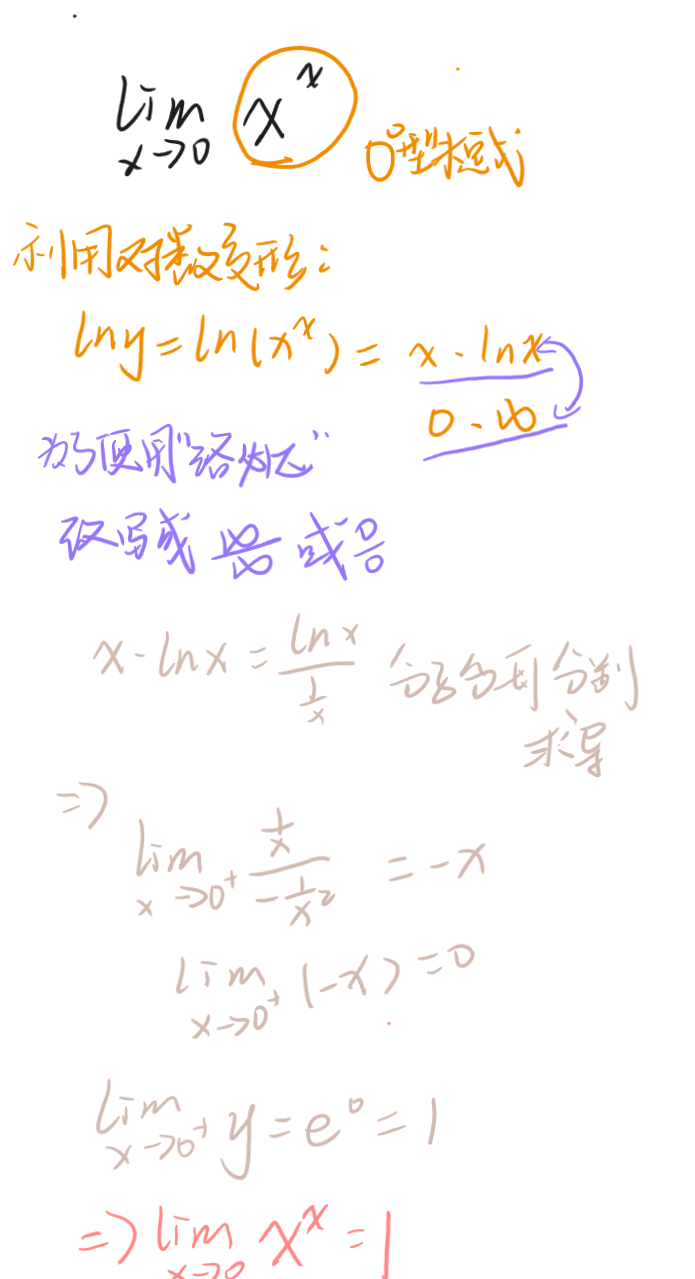 lim x→0 x^x 0^0型未定式
利用对数变形:
ln y = ln(x^x) = x · ln x
0 · ∞
为了使用“洛必达”
改写成 ∞/∞ 或 0/0
x · ln x = ln x / (1/x) 分子分母分别
求导
=>
lim x→0+ (1/x) / (-1/x²) = -x
lim x→0+ (-x) = 0
lim x→0+ y = e^0 = 1
=> lim x→0 x^x = 1